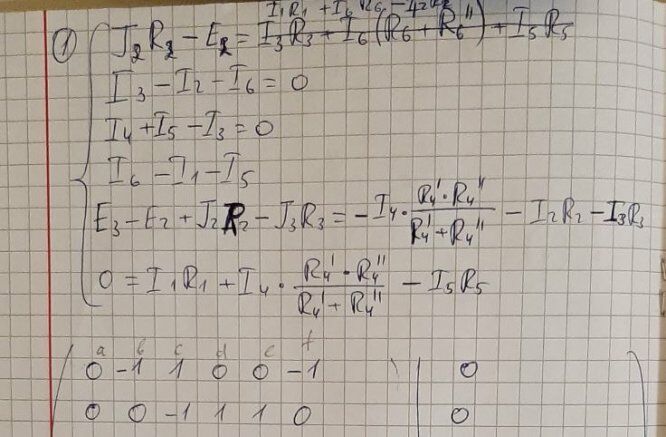 ① J₂R₂ − E₂ = I₃R₃ + I₆(R₆ + R₆'') + I₅R₅
I₃ − I₂ − I₆ = 0
I₄ + I₅ − I₃ = 0
I₆ − I₁ − I₅
E₃ − E₂ + J₂R₂ − J₃R₃ = −I₄ · R₄' · R₄'' / R₄' + R₄'' − I₂R₂ − I₃R₃
0 = I₁R₁ + I₄ · R₄' · R₄'' / R₄' + R₄'' − I₅R₅
a b c d e f
0 −1 1 0 0 −1 | 0
0 0 −1 1 1 0 | 0